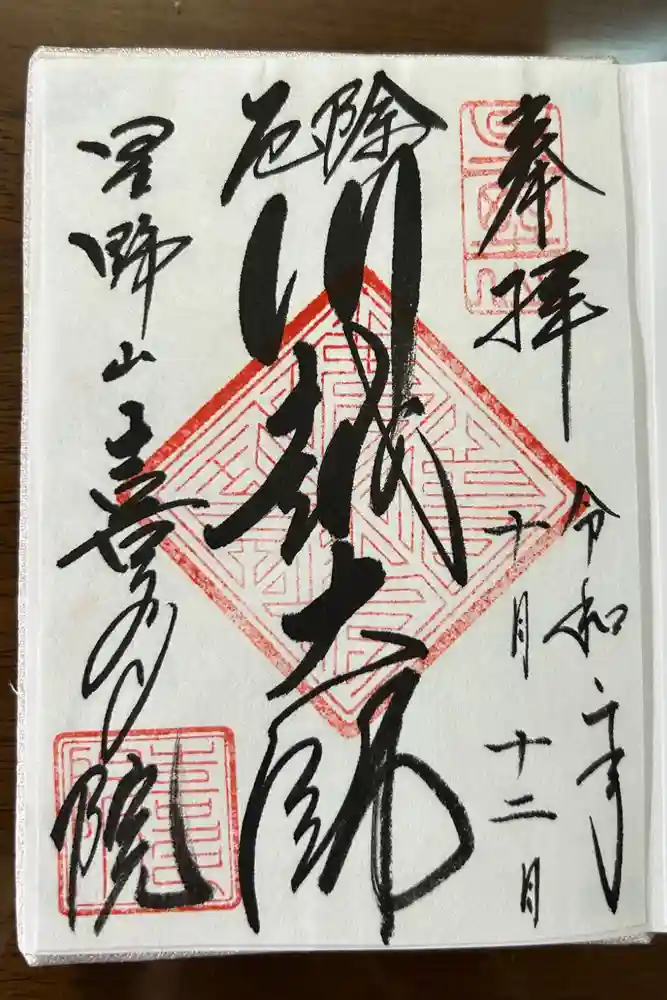 奉拝
令和二年
十月十二日
厄除
川越大師
星野山喜多院